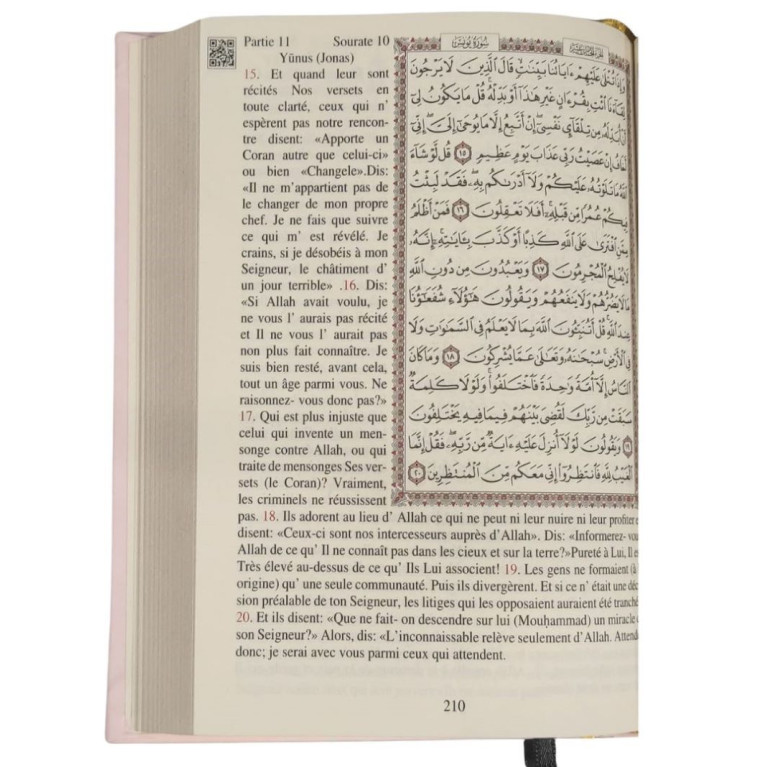 Partie 11 Sourate 10
Yūnus (Jonas)
15. Et quand leur sont
récités Nos versets en
toute clarté, ceux qui n’
espèrent pas notre rencon-
tre disent: «Apporte un
Coran autre que celui-ci»
ou bien «Changele».Dis:
«Il ne m’appartient pas de
le changer de mon propre
chef. Je ne fais que suivre
ce qui m’ est révélé. Je
crains, si je désobéis à mon
Seigneur, le châtiment d’
un jour terrible» .16. Dis:
«Si Allah avait voulu, je
ne vous l’ aurais pas récité
et Il ne vous l’ aurait pas
non plus fait connaître. Je
suis bien resté, avant cela,
tout un âge parmi vous. Ne
raisonnez- vous donc pas?»
17. Qui est plus injuste que
celui qui invente un men-
songe contre Allah, ou qui
traite de mensonges Ses ver-
sets (le Coran)? Vraiment,
les criminels ne réussissent
pas. 18. Ils adorent au lieu d’ Allah ce qui ne peut ni leur nuire ni leur profiter
disent: «Ceux-ci sont nos intercesseurs auprès d’Allah». Dis: «Informerez-
Allah de ce qu’ Il ne connaît pas dans les cieux et sur la terre?»Pureté à Lui, Il
Très élevé au-dessus de ce qu’ Ils Lui associent! 19. Les gens ne formaient (à
origine) qu’ une seule communauté. Puis ils divergèrent. Et si ce n’ était une
sion préalable de ton Seigneur, les litiges qui les opposaient auraient été tranché
20. Et ils disent: «Que ne fait- on descendre sur lui (Mouḥammad) un miracle
son Seigneur?» Alors, dis: «L’inconnaissable relève seulement d’Allah.
donc; je serai avec vous parmi ceux qui attendent.
سُورَةُ يُونُسَ
وَإِذَا تُتْلَىٰ عَلَيْهِمْ ءَايَاتُنَا بَيِّنَٰتٍ قَالَ ٱلَّذِينَ لَا يَرْجُونَ
لِقَآءَنَا ٱئْتِ بِقُرْءَانٍ غَيْرِ هَٰذَآ أَوْ بَدِّلْهُ قُلْ مَا يَكُونُ لِىٓ
أَنْ أُبَدِّلَهُۥ مِن تِلْقَآئِ نَفْسِىٓ إِنْ أَتَّبِعُ إِلَّا مَا يُوحَىٰٓ إِلَىَّ إِنِّىٓ
أَخَافُ إِنْ عَصَيْتُ رَبِّى عَذَابَ يَوْمٍ عَظِيمٍ ١٥ قُل لَّوْ شَآءَ
ٱللَّهُ مَا تَلَوْتُهُۥ عَلَيْكُمْ وَلَآ أَدْرَىٰكُم بِهِۦ فَقَدْ لَبِثْتُ
فِيكُمْ عُمُرًا مِّن قَبْلِهِۦٓ أَفَلَا تَعْقِلُونَ ١٦ فَمَنْ أَظْلَمُ
مِمَّنِ ٱفْتَرَىٰ عَلَى ٱللَّهِ كَذِبًا أَوْ كَذَّبَ بِـَٔايَٰتِهِۦٓ إِنَّهُۥ
لَا يُفْلِحُ ٱلْمُجْرِمُونَ ١٧ وَيَعْبُدُونَ مِن دُونِ ٱللَّهِ
مَا لَا يَضُرُّهُمْ وَلَا يَنفَعُهُمْ وَيَقُولُونَ هَٰٓؤُلَآءِ شُفَعَٰٓؤُنَا
عِندَ ٱللَّهِ قُلْ أَتُنَبِّـُٔونَ ٱللَّهَ بِمَا لَا يَعْلَمُ فِى ٱلسَّمَٰوَٰتِ وَلَا
فِى ٱلْأَرْضِ سُبْحَٰنَهُۥ وَتَعَٰلَىٰ عَمَّا يُشْرِكُونَ ١٨ وَمَا كَانَ
ٱلنَّاسُ إِلَّآ أُمَّةً وَٰحِدَةً فَٱخْتَلَفُوا۟ وَلَوْلَا كَلِمَةٌ
سَبَقَتْ مِن رَّبِّكَ لَقُضِىَ بَيْنَهُمْ فِيمَا فِيهِ يَخْتَلِفُونَ
١٩ وَيَقُولُونَ لَوْلَآ أُنزِلَ عَلَيْهِ ءَايَةٌ مِّن رَّبِّهِۦ فَقُلْ إِنَّمَا
ٱلْغَيْبُ لِلَّهِ فَٱنتَظِرُوٓا۟ إِنِّى مَعَكُم مِّنَ ٱلْمُنتَظِرِينَ ٢٠
210